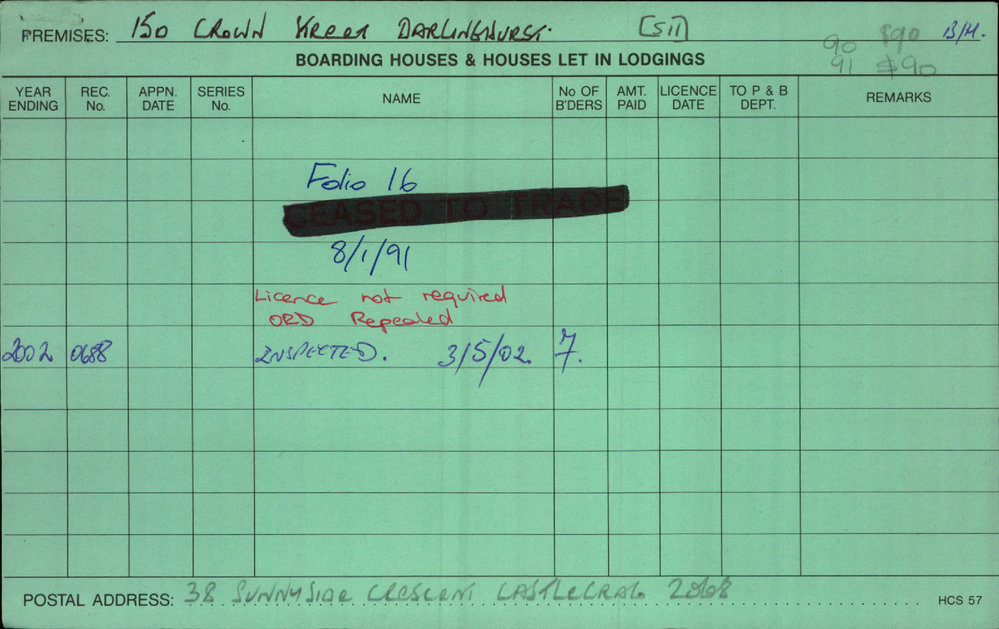 PREMISES: 150 CROWN STREET DARLINGHURST. [511] B/H.
90 $90
91 $90
BOARDING HOUSES & HOUSES LET IN LODGINGS
YEAR ENDING REC. No. APPN. DATE SERIES No. NAME No OF B'DERS AMT. PAID LICENCE DATE TO P & B DEPT. REMARKS
Folio 16
CEASED TO TRADE
8/1/91
Licence not required
ORD Repealed
2002 0688 INSPECTED. 3/5/02. 7.
POSTAL ADDRESS: 38 SUNNYSIDE CRESCENT CASTLECRAG 2068
HCS 57